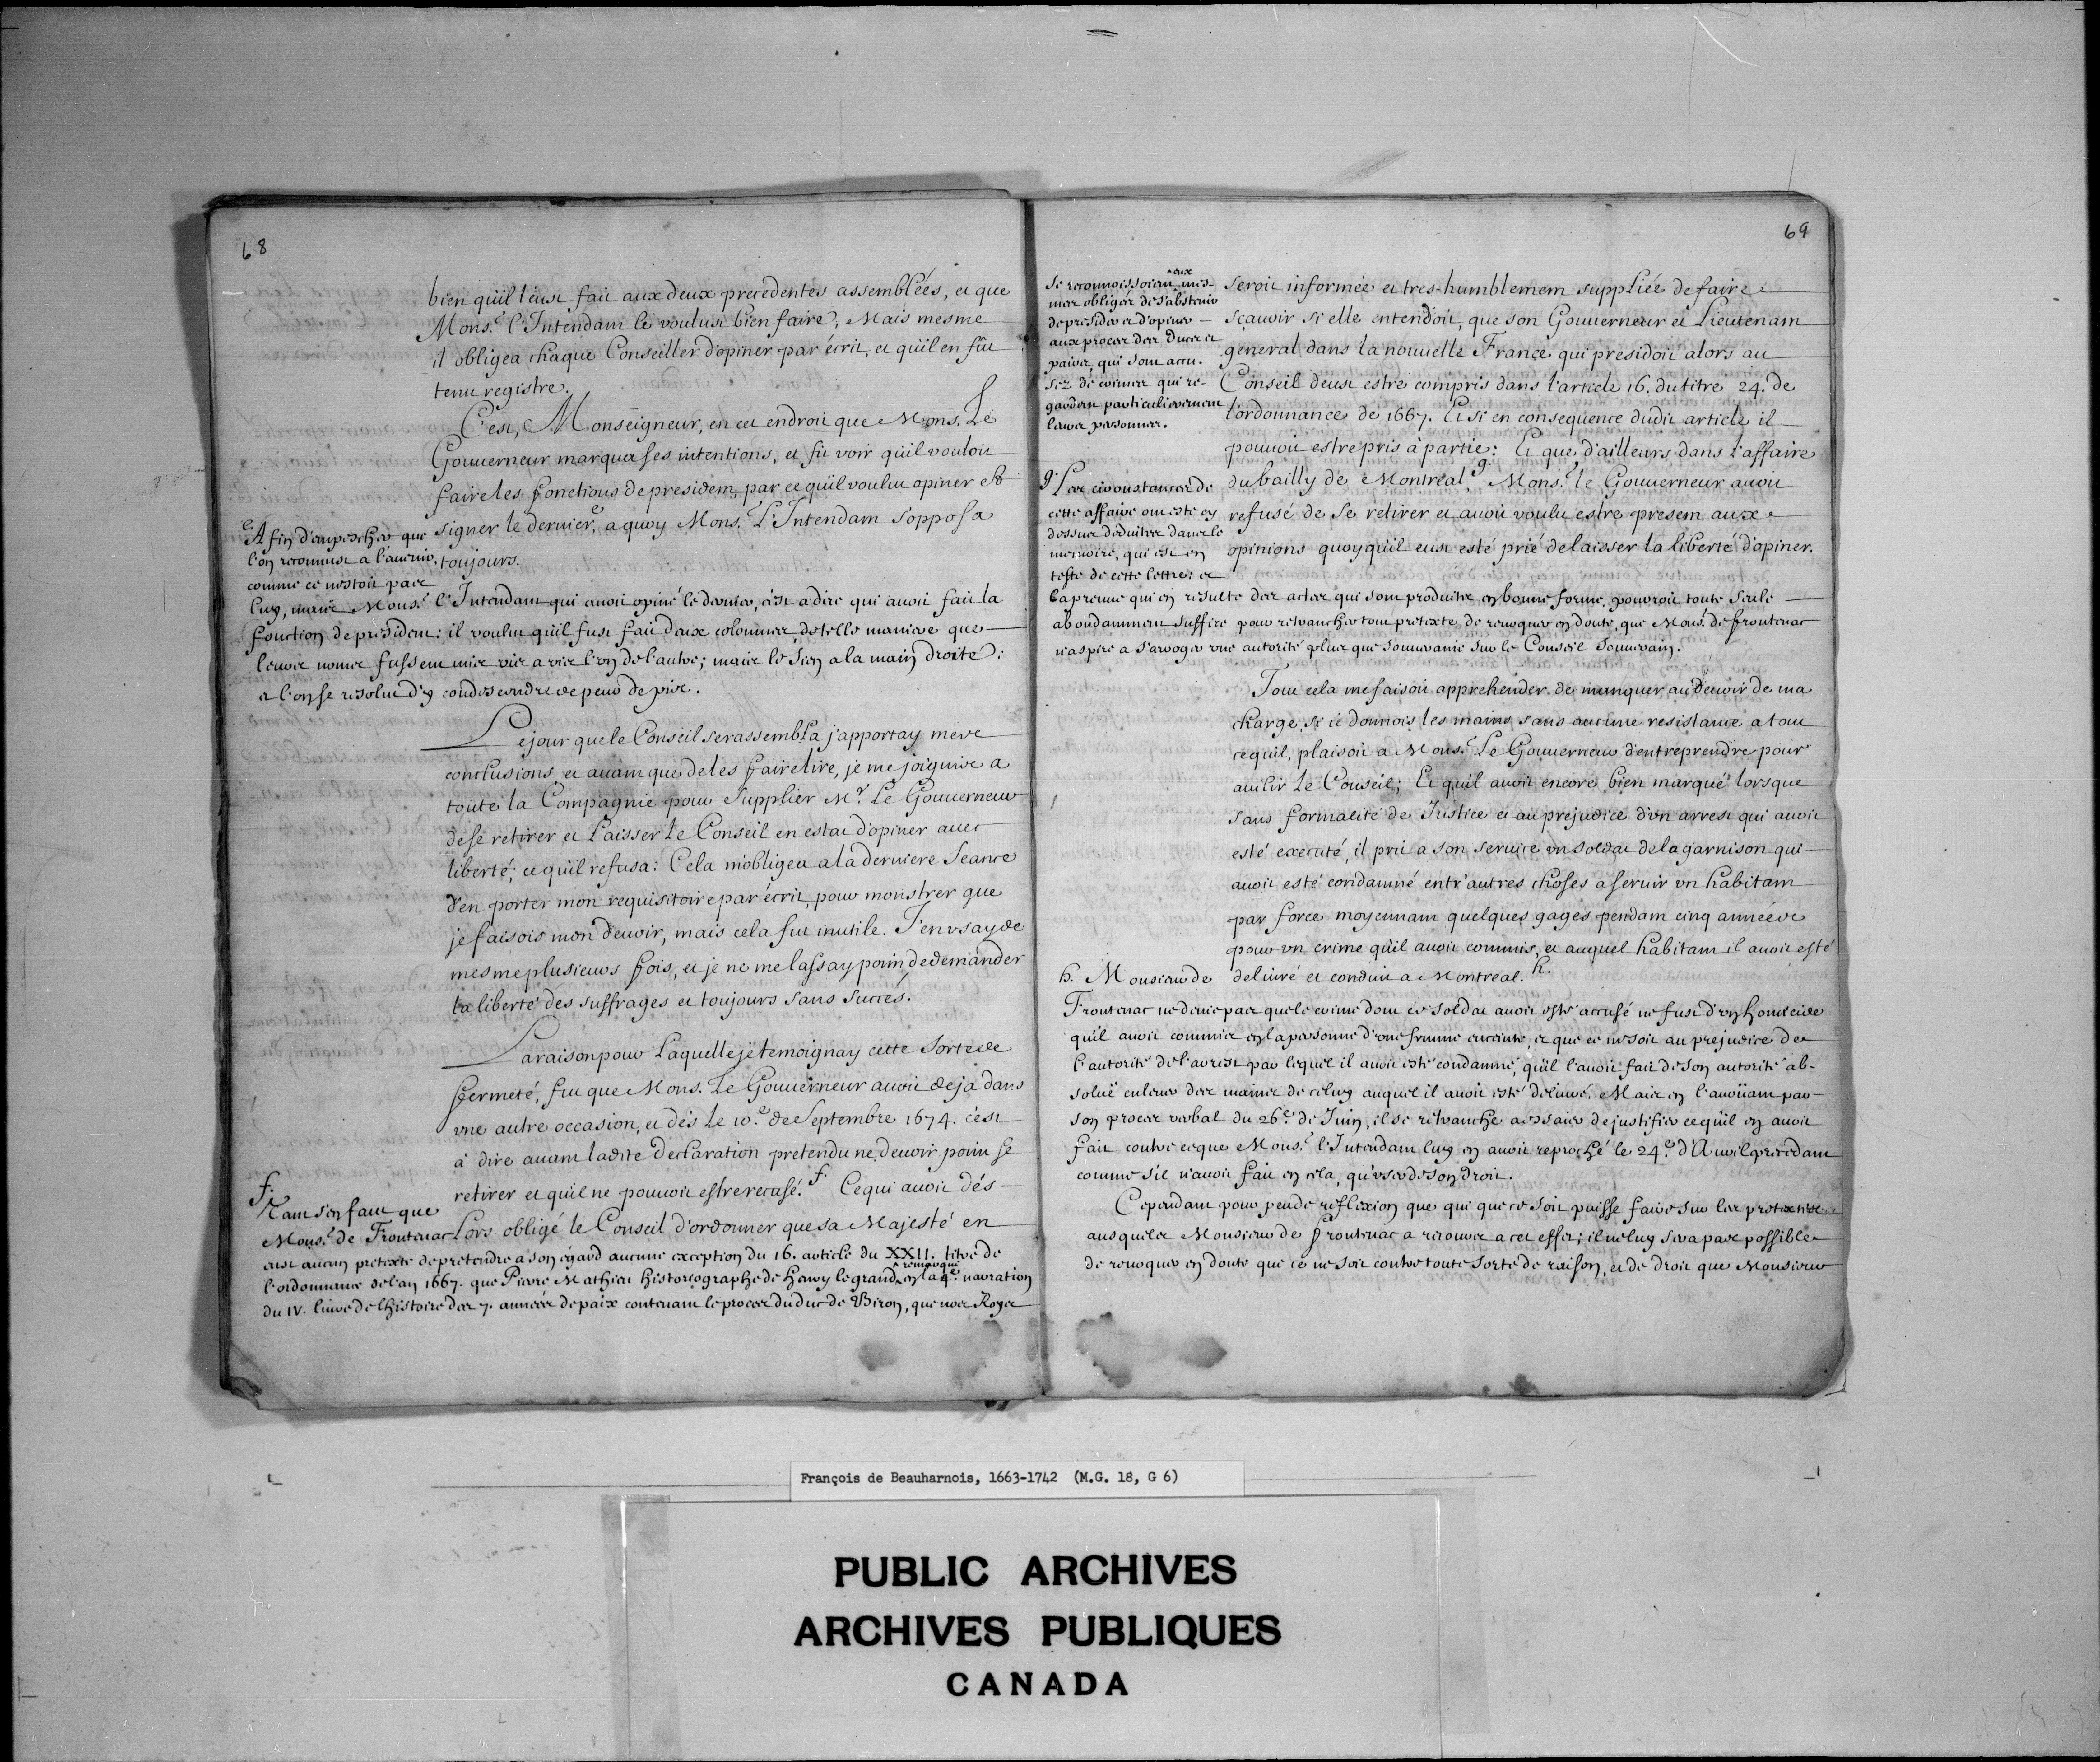 68
bien qu'il l'eust fait aux deux precedentes assemblées, et que
Mons.r l'Intendant le voulust bien faire, Mais mesme
il obligea chaque Conseiller d'opiner par écrit, et qu'il en fût
tenu registre.
C'est, Monseigneur, en cet endroit que Mons.r Le
Gouuerneur marqua ses intentions, et fit voir qu'il vouloit
faire les fonctions de president, par ce qu'il voulut opiner et
signer le dernier, e a quoy Mons.r L'Intendant s'opposa
toujours.
e Afin d'empescher que
l'on reconnust a l'auenir,
comme ce n'estoit pas
luy, mais Mons.r l'Intendant qui auoit opiné le dernier, c'est a dire qui auoit fait la
fonction de president: il voulut qu'il fust fait deux colonnes, de telle maniere que
leurs noms fussent mis vis a vis l'vn de l'autre; mais le sien a la main droite:
et l'on se resolut d'y condescendre de peur de pis.
Le jour que le Conseil se rassembla j'apportay mes
conclusions, et auant que de les faire lire, je me joignis a
toute la Compagnie pour supplier M.r Le Gouuerneur
de se retirer et Laisser Le Conseil en estat d'opiner auec
liberté; ce qu'il refusa: Cela m'obligea a la derniere Seance
d'en porter mon requisitoire par écrit, pour monstrer que
je faisois mon deuoir, mais cela fut inutile. J'en vsay de
mesme plusieurs fois, et je ne me lassay point de demander
la liberté des suffrages et toujours sans succés.
La raison pour Laquelle je temoignay cette sorte de
fermeté, fut que Mons. Le Gouuerneur auoit deja dans
vne autre occasion, et dés Le 10.e de Septembre 1674. c'est
à dire auant ladite declaration pretendu ne deuoir point se
retirer et qu'il ne pouuoit estre recusé. f. Ce qui auoit dés-
Lors obligé le Conseil d'ordonner que sa Majesté en
f. Tant s'en faut que
Mons.r de Frontenac
eust aucun pretexte de pretendre a son égard aucune exception du 16. article du XXII. titre de
l'ordonnance de l'an 1667. que Pierre Mathieu historiographe de Henry le grand, ^remarque en la 4.e narration
du IV. liure de l'histoire des 7. années de paix contenant le proces du duc de Biron, que nos Roys
69
se reconnoissoient ^eux mes-
mes obligez de s'abstenir
de presider et d'opiner
aux proces des Ducs et
pairs, qui sont accu-
sez de crimes qui re-
gardent particulierement
leurs personnes.
seroit informée et tres-humblement suppliée de faire
sçauoir si elle entendoit, que son Gouuerneur et Lieutenant
general dans la nouuelle France qui presidoit alors au
Conseil deust estre compris dans l'article 16. du titre 24. de
l'ordonnance de 1667. Et si en consequence dudit article il
pouuoit estre pris à partie: Et que d'ailleurs dans l'affaire
du bailly de Montréal, g. Mons.r le Gouuerneur auoit
refusé de se retirer et auoit voulu estre present aux
opinions quoyqu'il eust esté prié de laisser la liberté d'opiner.
g. Les circonstances de
cette affaire ont esté cy
dessus deduites dans le
memoire, qui est en
teste de cette lettre: et
la preuue qui en resulte des actes qui sont produits en bonne forme, pouroit toute seule
abondamment suffire pour retrancher tout pretexte de reuoquer en doute, que Mons.r de frontenac
n'aspire a s'arroger vne autorité plus que souueraine sur le Conseil Souuerain.
Tout cela me faisoit apprehender de manquer au deuoir de ma
charge, si ie donnois les mains sans aucune resistance a tout
ce qu'il plaisoit a Mons.r Le Gouuerneur d'entreprendre pour
auilir Le Conseil; Et qu'il auoit encore bien marqué lorsque
sans formalité de Justice et au prejudice d'vn arrest qui auoit
esté executé, il prit a son seruice vn soldat de la garnison qui
auoit esté condamné entr'autres choses a seruir vn habitant
par force moyennant quelques gages pendant cinq années
pour vn crime qu'il auoit commis, et auquel habitant il auoit esté
deliuré et conduit a Montreal. h.
h. Monsieur de
Frontenac ne denie pas que le crime dont ce soldat auoit esté accusé ne fust d'vn homicide
qu'il auoit commis en la personne d'vne femme enceinte, et que ce ne soit au prejudice de
l'autorité de l'arrest par lequel il auoit esté condamné, qu'il l'auoit fait de son autorité ab-
soluë enleuer des mains de celuy auquel il auoit esté deliuré. Mais en l'auoüant par
son proces verbal du 26.e de Juin, il se retranche a essaier de justifier ce qu'il en auoit
fait contre ce que Mons.r l'Intendant luy en auoit reproché le 24.e d'Auril precedant
comme s'il n'auoit fait en cela, qu'vser de son droit.
Cependant pour peu de reflexion que qui que ce soit puisse faire sur les pretextes
ausquels Monsieur de frontenac a recouru a cet effet; il ne luy sera pas possible
de reuoquer en doute que ce ne soit contre toute sorte de raison, et de droit que Monsieur
François de Beauharnois, 1663-1742 (M.G. 18, G 6)
PUBLIC ARCHIVES
ARCHIVES PUBLIQUES
CANADA